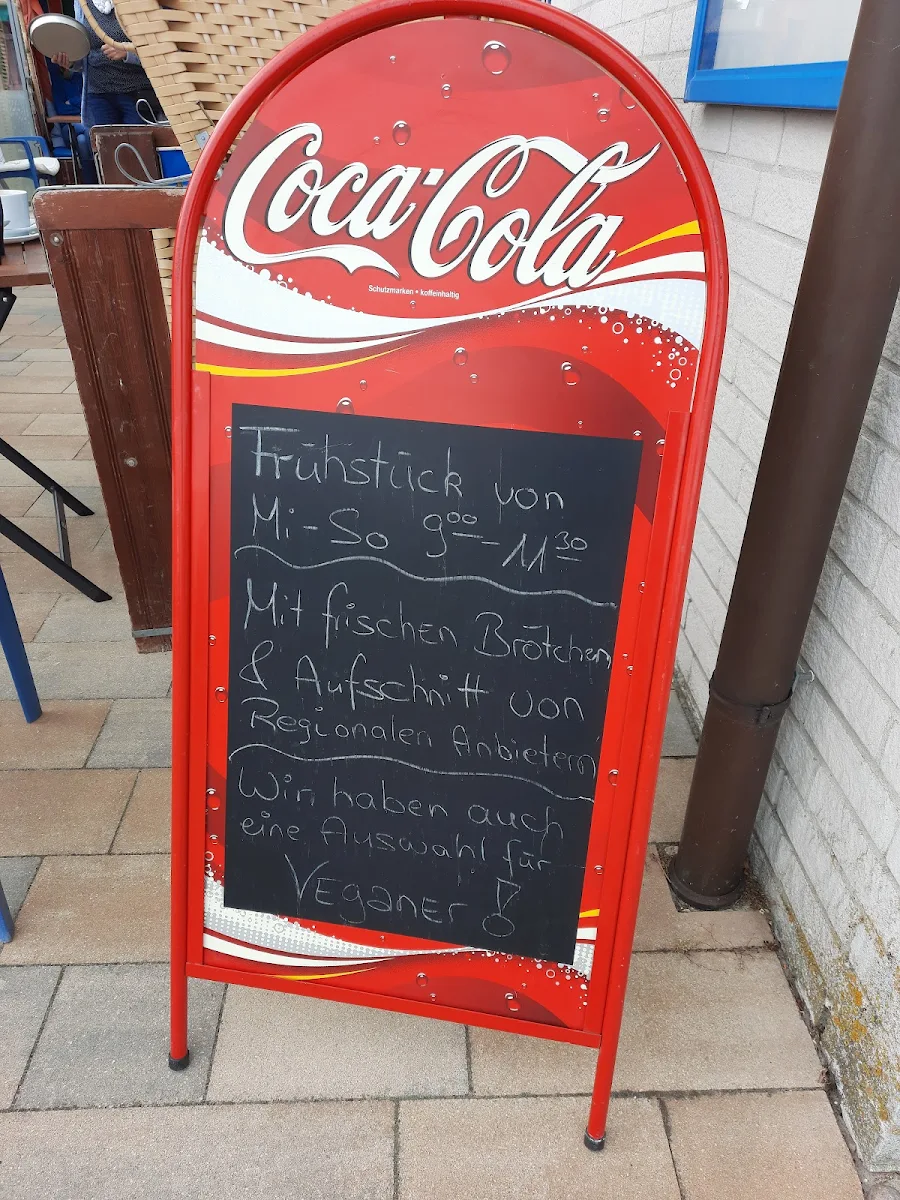 Coca-Cola
Schutzmarken • koffeinhaltig
Frühstück von
Mi-So 9⁰⁰-11³⁰
Mit frischen Brötchen
& Aufschnitt von
Regionalen Anbietern
Wir haben auch
eine Auswahl für
Veganer!